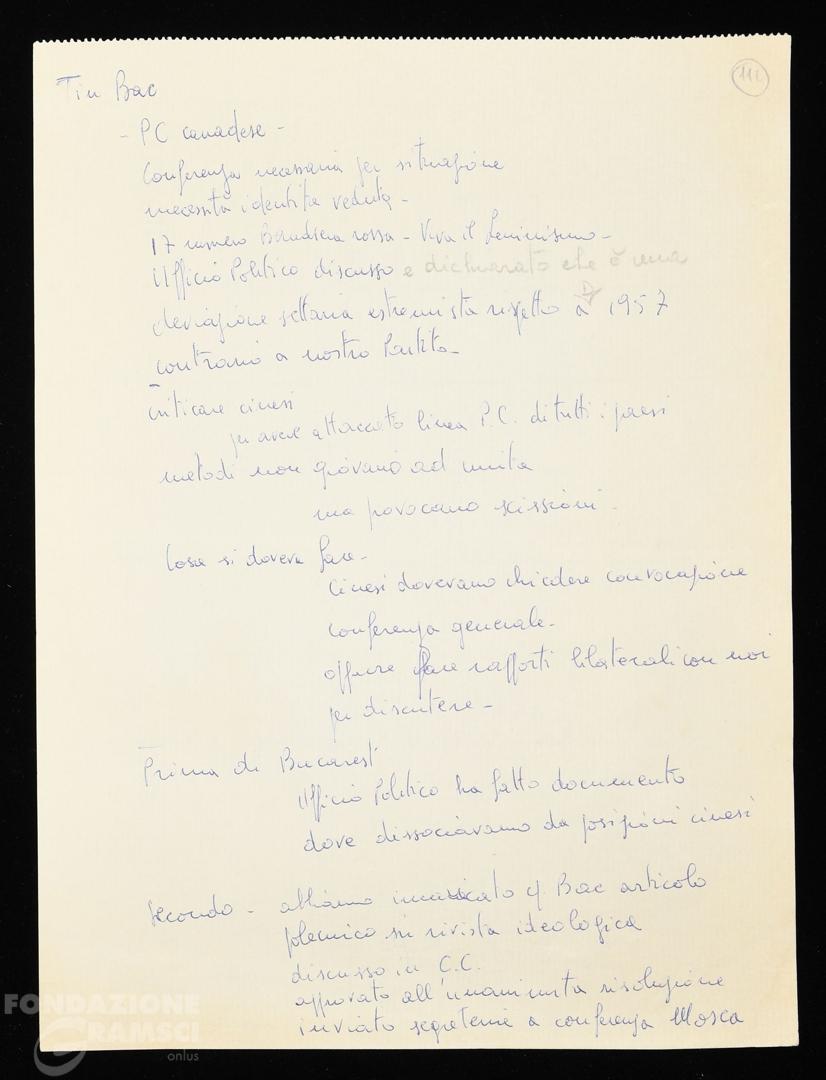 111
Tim Bac
- PC canadese -
Conferenza necessaria per situazione
necessità identità vedute -
17 numero Bandiera rossa - Viva il Leninismo -
Ufficio Politico discusso e dichiarato che è una
deviazione settaria estremista rispetto a D 1957
contrario a nostro Partito -
criticare cinesi
per avere attaccato linea P.C. di tutti i paesi
metodi non giovano ad unità
ma povocano scissioni.
Cosa si doveva fare -
cinesi dovevano chiedere convocazione
conferenza generale -
oppure fare rapporti bilaterali con noi
per discutere -
Prima di Bucarest
Ufficio Politico ha fatto documento
dove dissociavamo da posizioni cinesi
Secondo - abbiamo incaricato c. Bac articolo
polemico su rivista ideologica
discusso in C.C.
approvato all'unanimità risoluzione
inviato segreterie a conferenza Mosca
FONDAZIONE
GRAMSCI
onlus